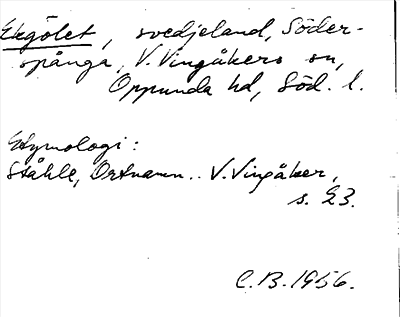 Ekgölet, svedjeland, Söder-
spånga, V. Vingåkers sn,
Oppunda hd, Söd. l.
Etymologi:
Ståhle, Ortnamn.. V. Vingåker,
s. 23.
C.B. 1956.